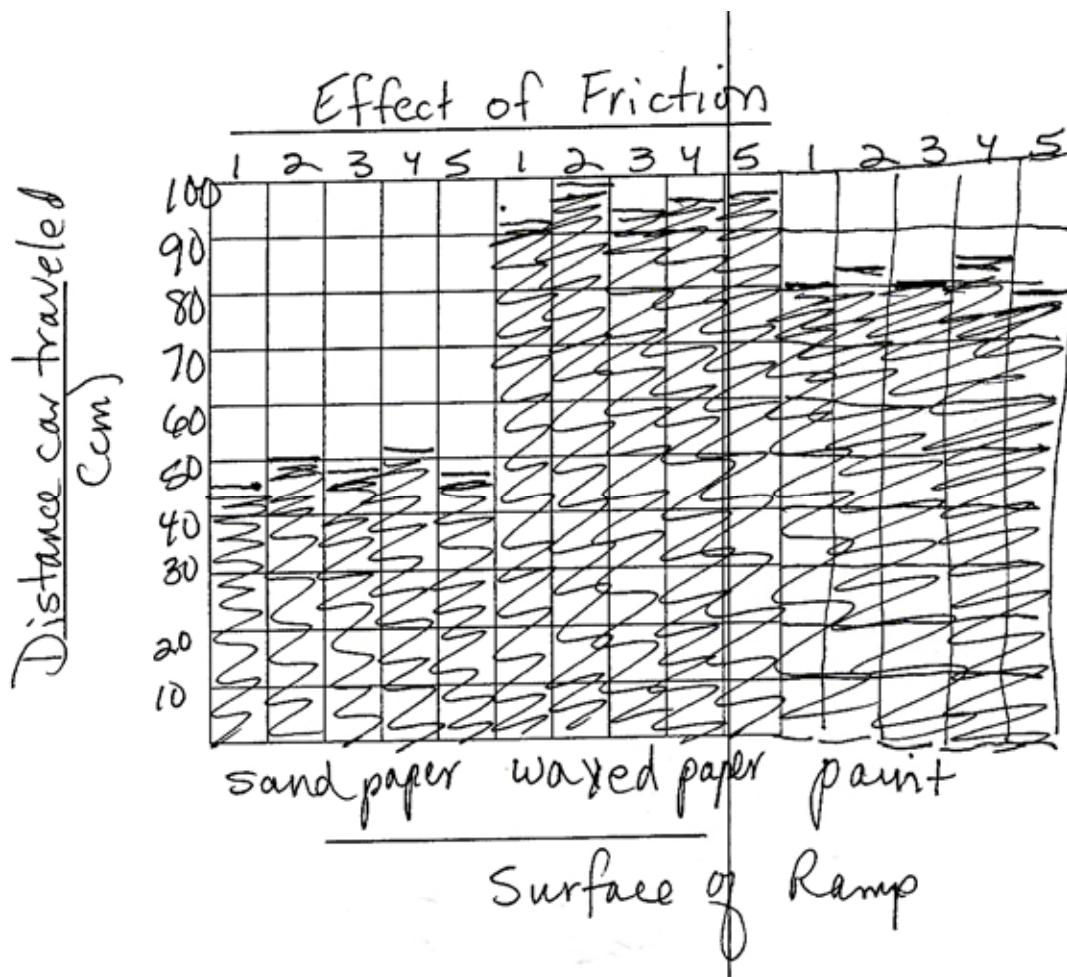 Effect of Friction
1 2 3 4 5 1 2 3 4 5 1 2 3 4 5
Distance car traveled
(cm)
100
90
80
70
60
50
40
30
20
10
sand paper waxed paper paint
Surface of Ramp